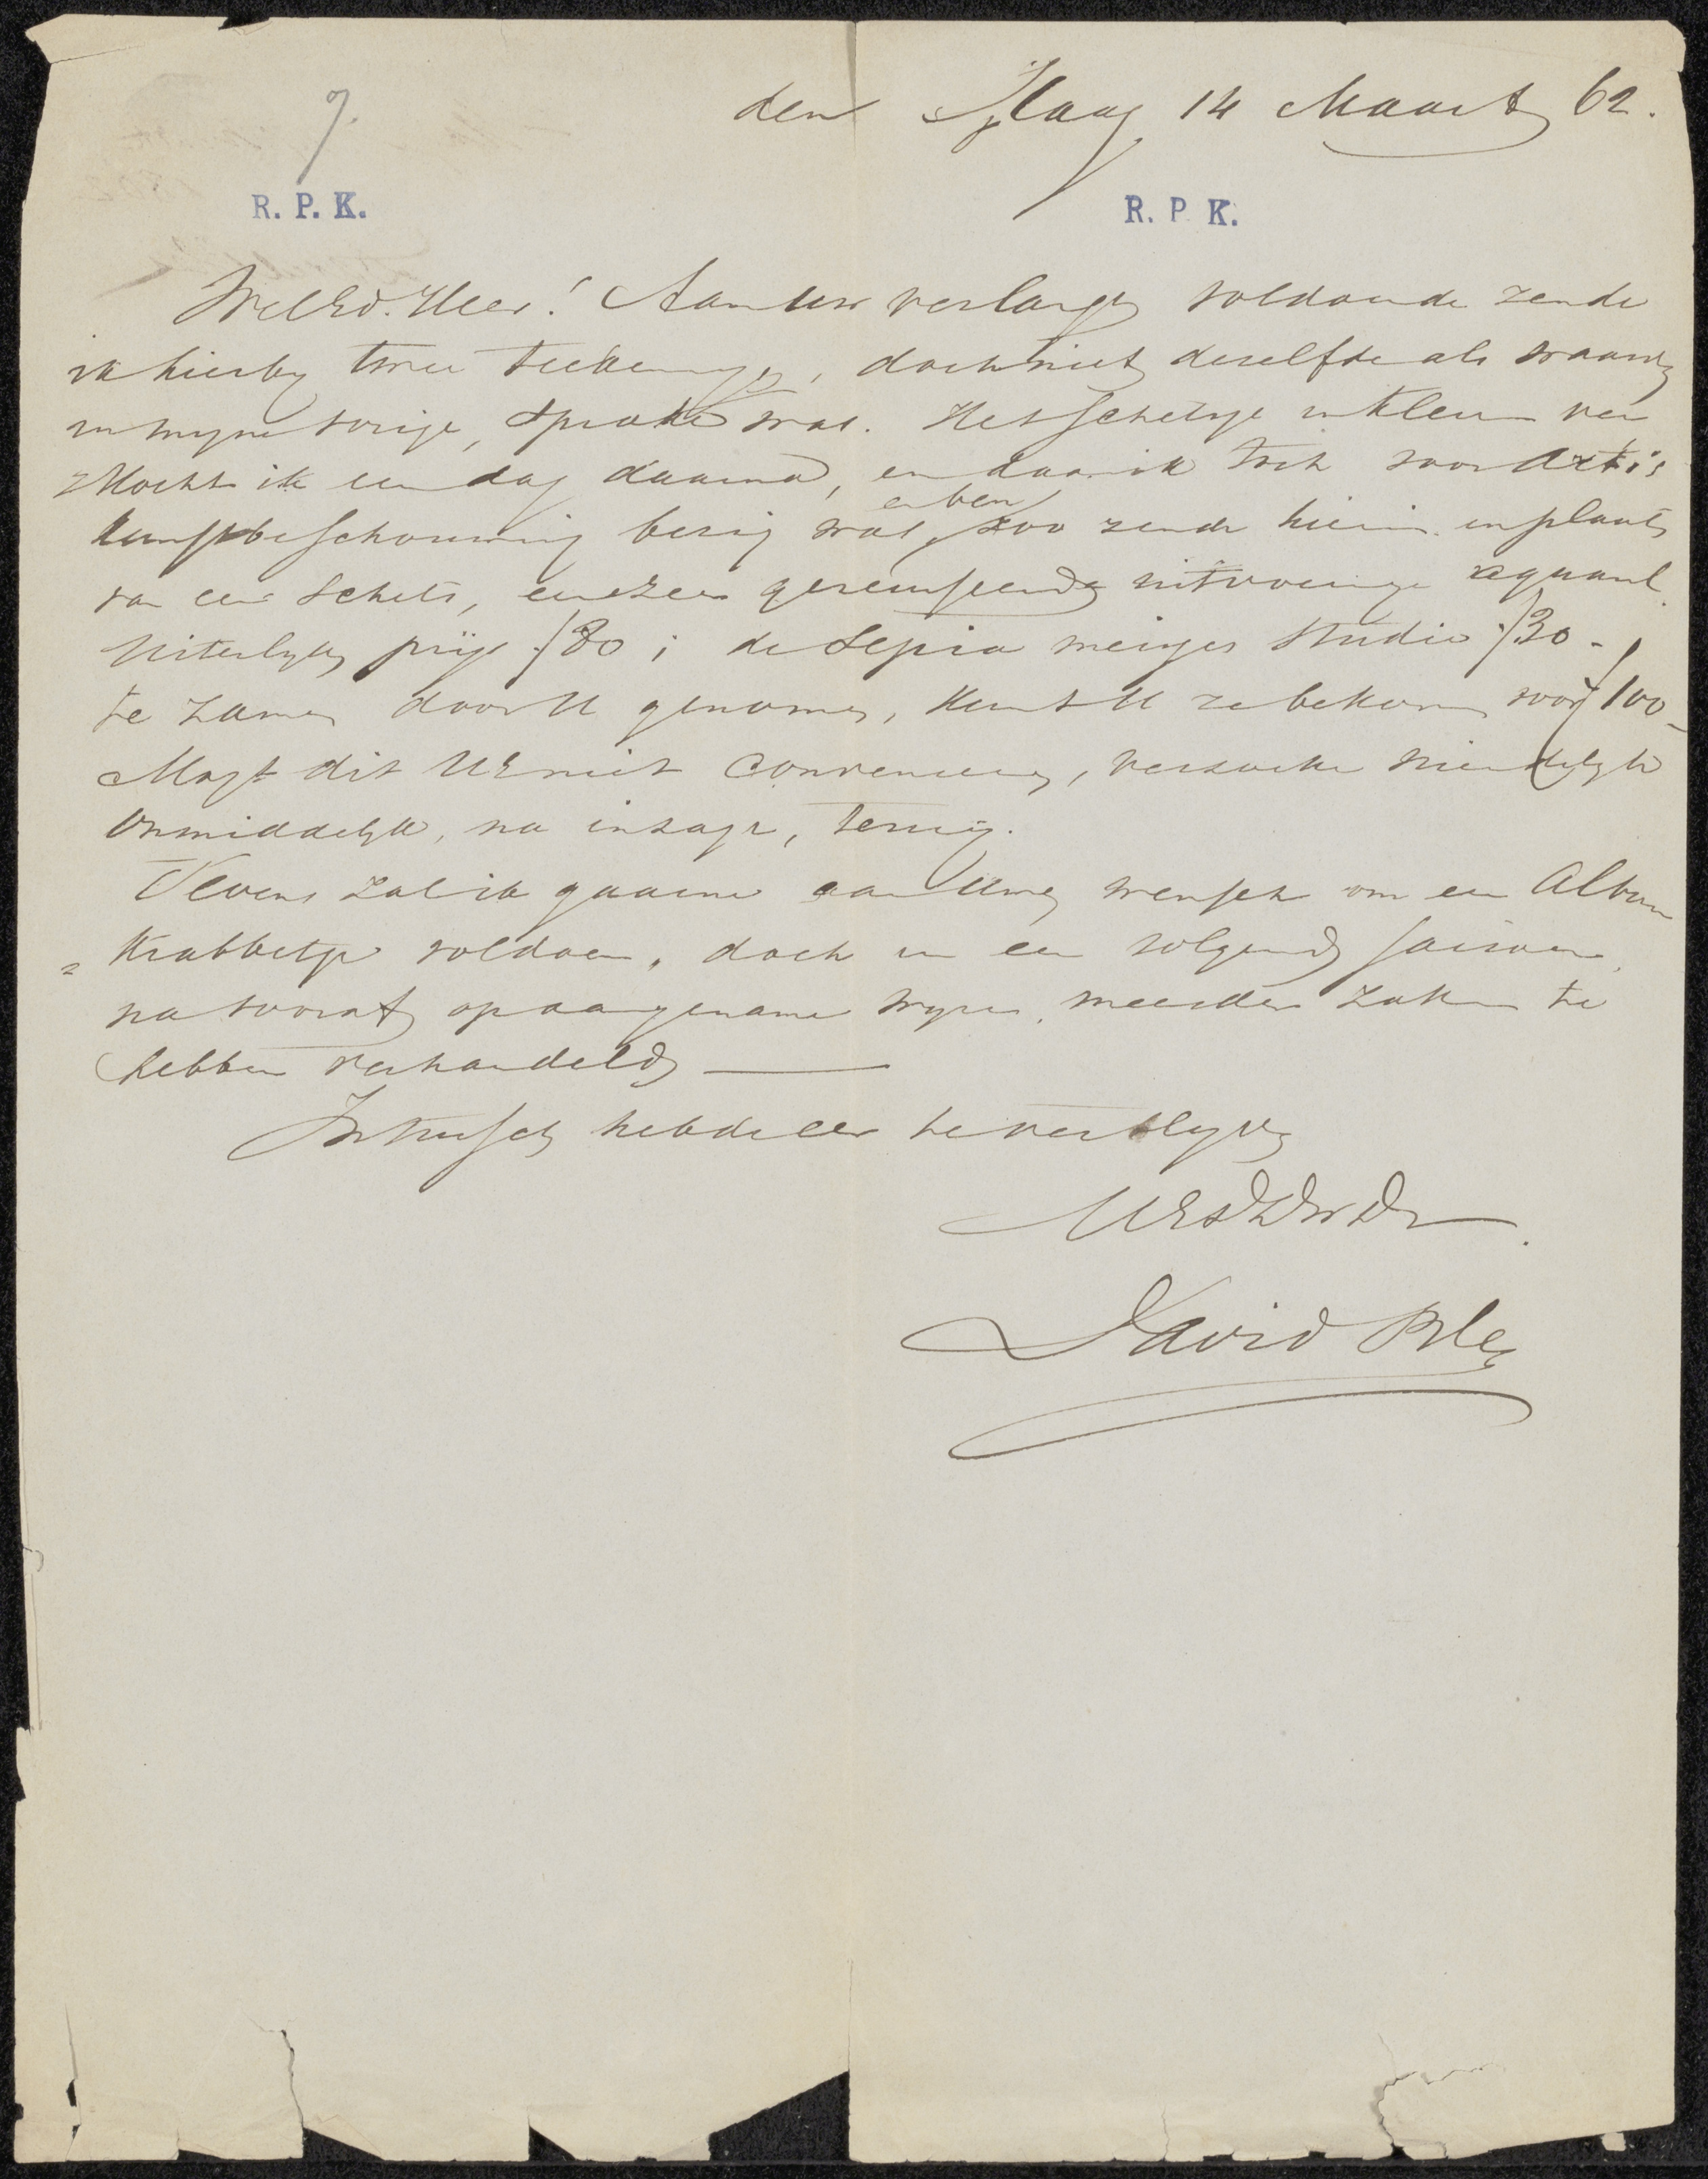 7.
den Haag 14 Maart 62.
R. P. K. R. P K.
WelEd. Heer! Aan Uw verlangen voldoende zende
ik hierby twee teekeningen, doch niet deselfde als waarvan
in myne vorige, sprake was. Het schetsje in kleur ver
=kocht ik een dag daarna, en daar ik toch voor Artis
en ben
kunstbeschouwing bezig was, zoo zende hierin in plaats
van een schets, eene zeer uitvoerige aquarel.
Uiterlyke prijs f 80; de Sepia studie f 30-
te zamen door U genomen, kunt U ze bekomen voor f 100-
Mogt dit UE niet convenieeren, verzoeke vriendelyk
onmiddelyk, na inzage, terug.
Tevens zal ik gaarne aan Uwen wensch om een Album
=krabbeltje voldoen, doch in een volgend saisoen,
na vooraf op aangename wyze, meerdere zaken te
hebben verhandeld
Intusschen heb de eer te verblyven
UEdDwDr.
David Bles